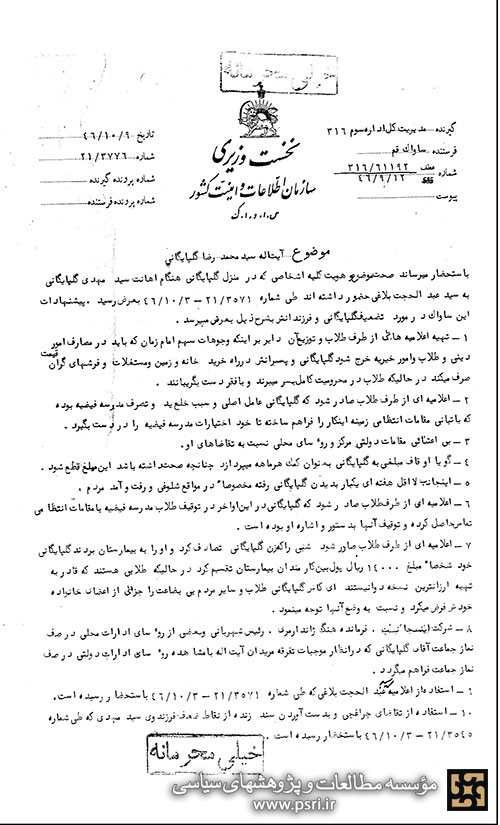 خیلی محرمانه
نخست وزیری
سازمان اطلاعات و امنیت کشور
س.ا.و.ا.ک
گیرنده مدیریت کل اداره سوم ۳۱۶
فرستنده ساواک قم
شماره ۳۱۶/۶۱۱۹۲
۴۶/۹/۱۲
پیوست
تاریخ ۴۶/۱۰/۹
شماره ۲۱/۳۷۷۶
شماره پرونده گیرنده
شماره پرونده فرستنده
موضوع آیت‌اله سید محمد رضا گلپایگانی
باستحضار میرساند صحت‌موضوع هویت کلیه اشخاصی که در منزل گلپایگانی هنگام اهانت سید مهدی گلپایگانی
به سید عبد الحجت بلاغی حضور داشته اند طی شماره ۲۱/۳۵۷۱ – ۴۶/۱۰/۳ بعرض رسید . پیشنهادات
این ساواک در مورد تضعیف‌گلپایگانی و فرزندانش بشرح‌ذیل بعرض میرسد .
۱ – تهیه اعلامیه هائی از طرف طلاب و توزیع‌آن دایر بر اینکه وجوهات سهم امام زمان که باید در مصارف امور
دینی و طلاب وامور خیریه خرج شود گلپایگانی و پسرانش در راه خرید خانه و زمین و مستغلات و فرشهای گران قیمت
صرف میکند در حالیکه طلاب در محرومیت کامل بسر میبرند و با فقر دست بگریبانند .
۲ – اعلامیه ای از طرف طلاب صادر شود که گلپایگانی عامل اصلی و سبب خلع ید و تصرف مدرسه فیضیه بوده
که باتبانی مقامات انتظامی زمینه اینکار را فراهم ساخته تا خود اختیارات مدرسه فیضیه را در دست بگیرد .
۳ – بی اعتنائی مقامات دولتی مرکز و روسای محلی نسبت به تقاضاهای او .
۴ – گویا اوقاف مبلغی به گلپایگانی به‌نوان کمک هرماهه میپردازد چنانچه صحت‌داشته باشد این‌مبلغ قطع شود .
۵ – اینجانب لااقل هفته ای یکبار بدیدن گلپایگانی رفته مخصوصاً در مواقع شلوغی و رفت و آمد مردم .
۶ – اعلامیه ای از طرف‌طلاب صادر شود که گلپایگانی در این‌اواخر در توقیف طلاب مدرسه فیضیه بامقامات انتظامی
تماس‌حاصل کرده و توقیف آنها بدستور و اشاره او بوده است .
۷ – اعلامیه ای از طرف طلاب صاور شود شبی راکه‌زن گلپایگانی تصادف کرد و او را به بیمارستان بردند گلپایگانی
خود شخصاً مبلغ ۱۴۰۰۰ ریال پول‌بین‌کارمندان بیمارستان تقسیم کرد در حالیکه طلابی هستند که قادر به
تهیه ارزانترین نسخه دوانیستند ای کاش گلپایگانی طلاب و سایر مردم بی بضاعت را جزئی از اعضاء خانواده
خود ش فرض میکرد و نسبت به وضع آنها توجه مینمود .
۸ – شرکت اینجانب ، فرمانده هنگ ژاندارمری ، رئیس شهربانی و بعضی از روسای ادارات محلی در صف
نماز جماعت آقای گلپایگانی که در انظار موجبات تفرقه مریدان آیت اله با مشاهده روسای ادارات دولتی در صف
نماز جماعت فراهم میگردد .
۹ – استفاده از اعلامیه عبد الحجت بلاغی که طی شماره ۲۱/۳۵۷۱ – ۴۶/۱۰/۳ باستحضار رسیده است .
۱۰ – استفاده از تقاضای چراغچی و بدست آوردن سند زنده از نقاط ضعف فرزندوی سید مهدی که طی شماره
۲۱/۳۵۴۵ – ۴۶/۱۰/۳ باستحضار رسیده است .
خیلی محرمانه
مؤسسه مطالعات و پژوهشهای سیاسی
www.psri.ir